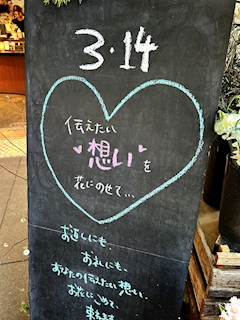 3.14
伝えたい
想いを
花にのせて...
お返しにも、
お礼にも、
あなたの伝えたい想い、
お花にこめて、